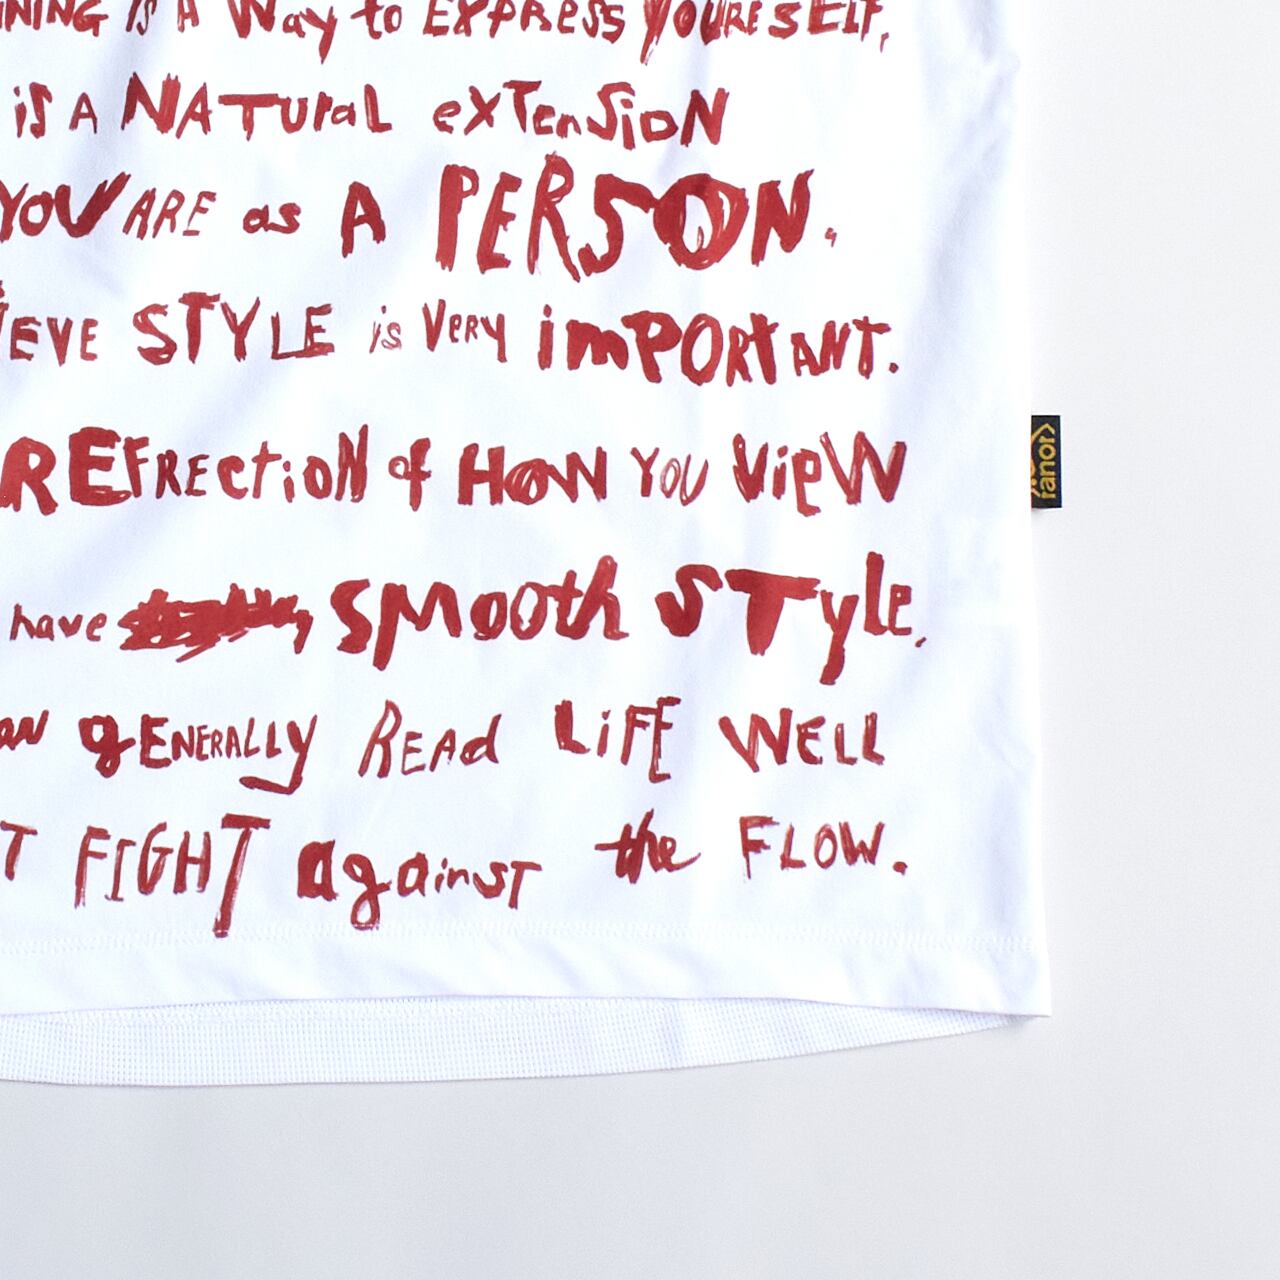 NING IS A Way to EXPRESS YOURESELF,
is A NATUral exTenSioN
YOU ARE as A PERSON.
IEVE STYLE is Very imPORTANT.
REFRECtiON of HOW YOU VieW
have smooth STyle,
an gENERALLY READ LiFE WELL
T FIGHT against the FLOW.
ranor